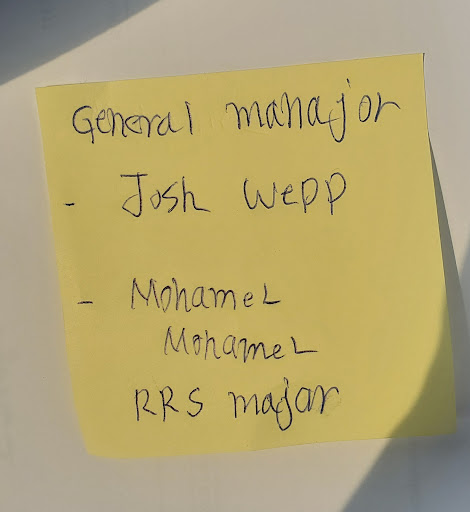 General manajor
- Josh Wepp
- Mohamel
Mohamel
RRS majar